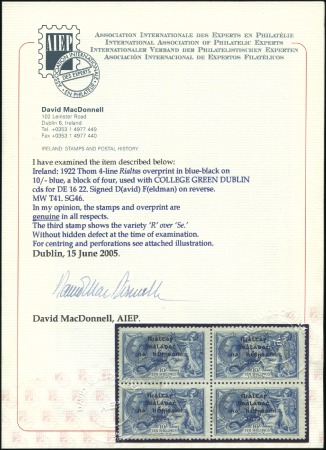 ASSOCIATION INTERNATIONALE DES EXPERTS EN PHILATÉLIE
INTERNATIONAL ASSOCIATION OF PHILATELIC EXPERTS
INTERNATIONALER VERBAND DER PHILATELISTISCHEN EXPERTEN
ASOCIACIÓN INTERNACIONAL DE EXPERTOS FILATÉLICOS
AIEP
David MacDonnell
102 Leinster Road
Dublin 6, Ireland
Tel +0353 1 4977 449
Fax +0353 1 4977 440
IRELAND: STAMPS AND POSTAL HISTORY
I have examined the item described below:
Ireland: 1922 Thom 4-line Rialtas overprint in blue-black on
10/- blue, a block of four, used with COLLEGE GREEN DUBLIN
cds for DE 16 22. Signed D(avid) F(eldman) on reverse.
MW T41. SG46.
In my opinion, the stamps and overprint are
genuine in all respects.
The third stamp shows the variety 'R' over 'Se.'
Without hidden defect at the time of examination.
For centring and perforations see attached illustration.
Dublin, 15 June 2005.
David MacDonnell
David MacDonnell, AIEP.